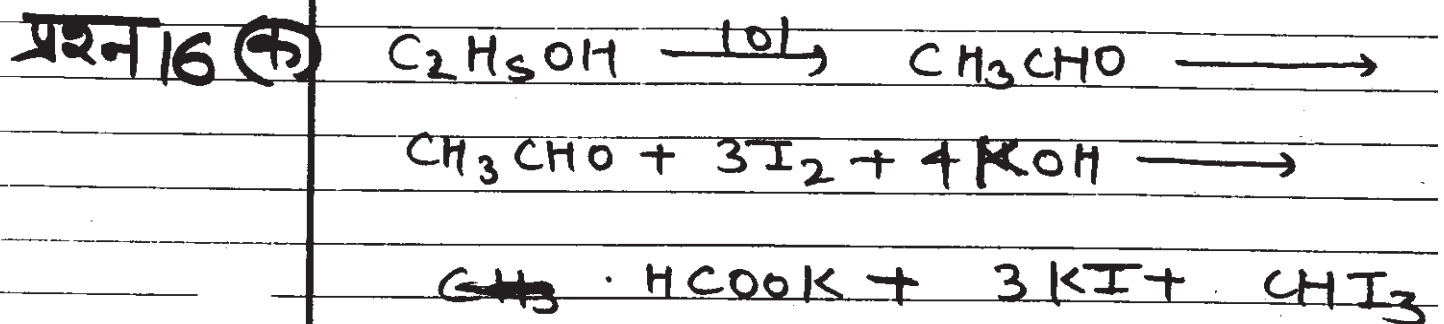 प्रश्न 16 (क) C₂H₅OH —|0|→ CH₃CHO ⟶
CH₃CHO + 3I₂ + 4KOH ⟶
HCOOK + 3KI + CHI₃